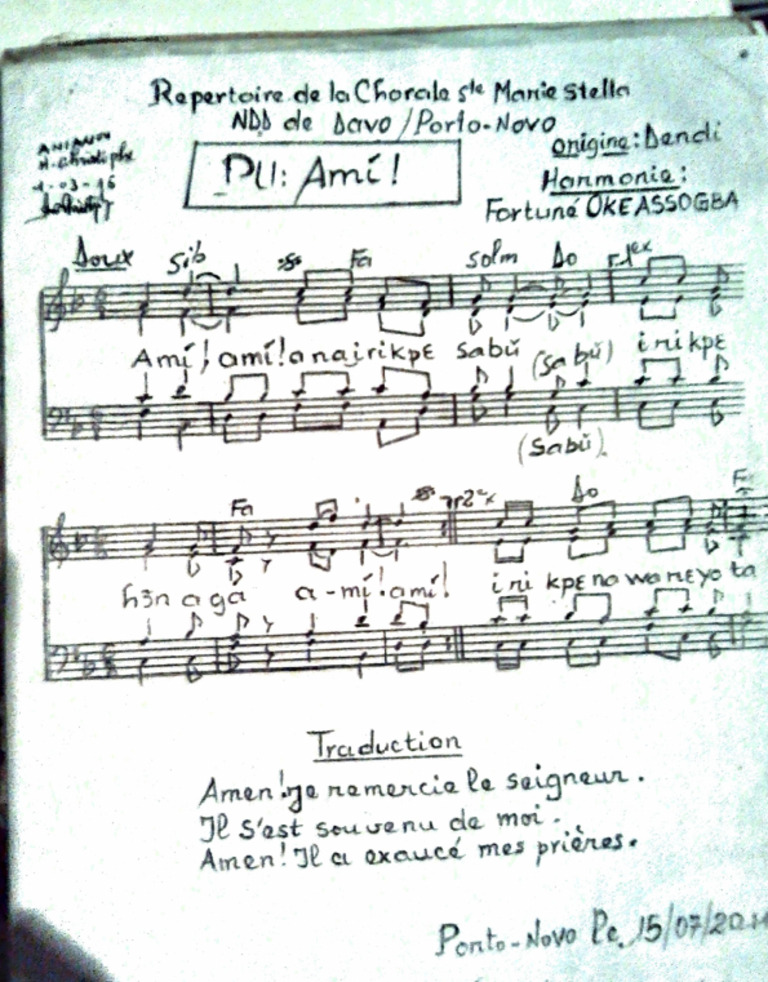 Repertoire de la Chorale Ste Marie Stella
NDD de Davo / Porto-Novo
origine: Dendi
H. Christophe
PU: Amí!
Harmonie:
Fortuné OKE ASSOGBA
Doux Sib Fa Solm Do
Amí! amí! a na irikpɛ sabŭ (sabŭ) i ri kpɛ
(sabŭ)
Fa Do
hɔ̃n a ga a-mí! amí! i ri kpɛ no wa nɛ yo ta
Traduction
Amen! je remercie le seigneur.
Il s'est souvenu de moi.
Amen! Il a exaucé mes prières.
Porto-Novo le, 15/07/